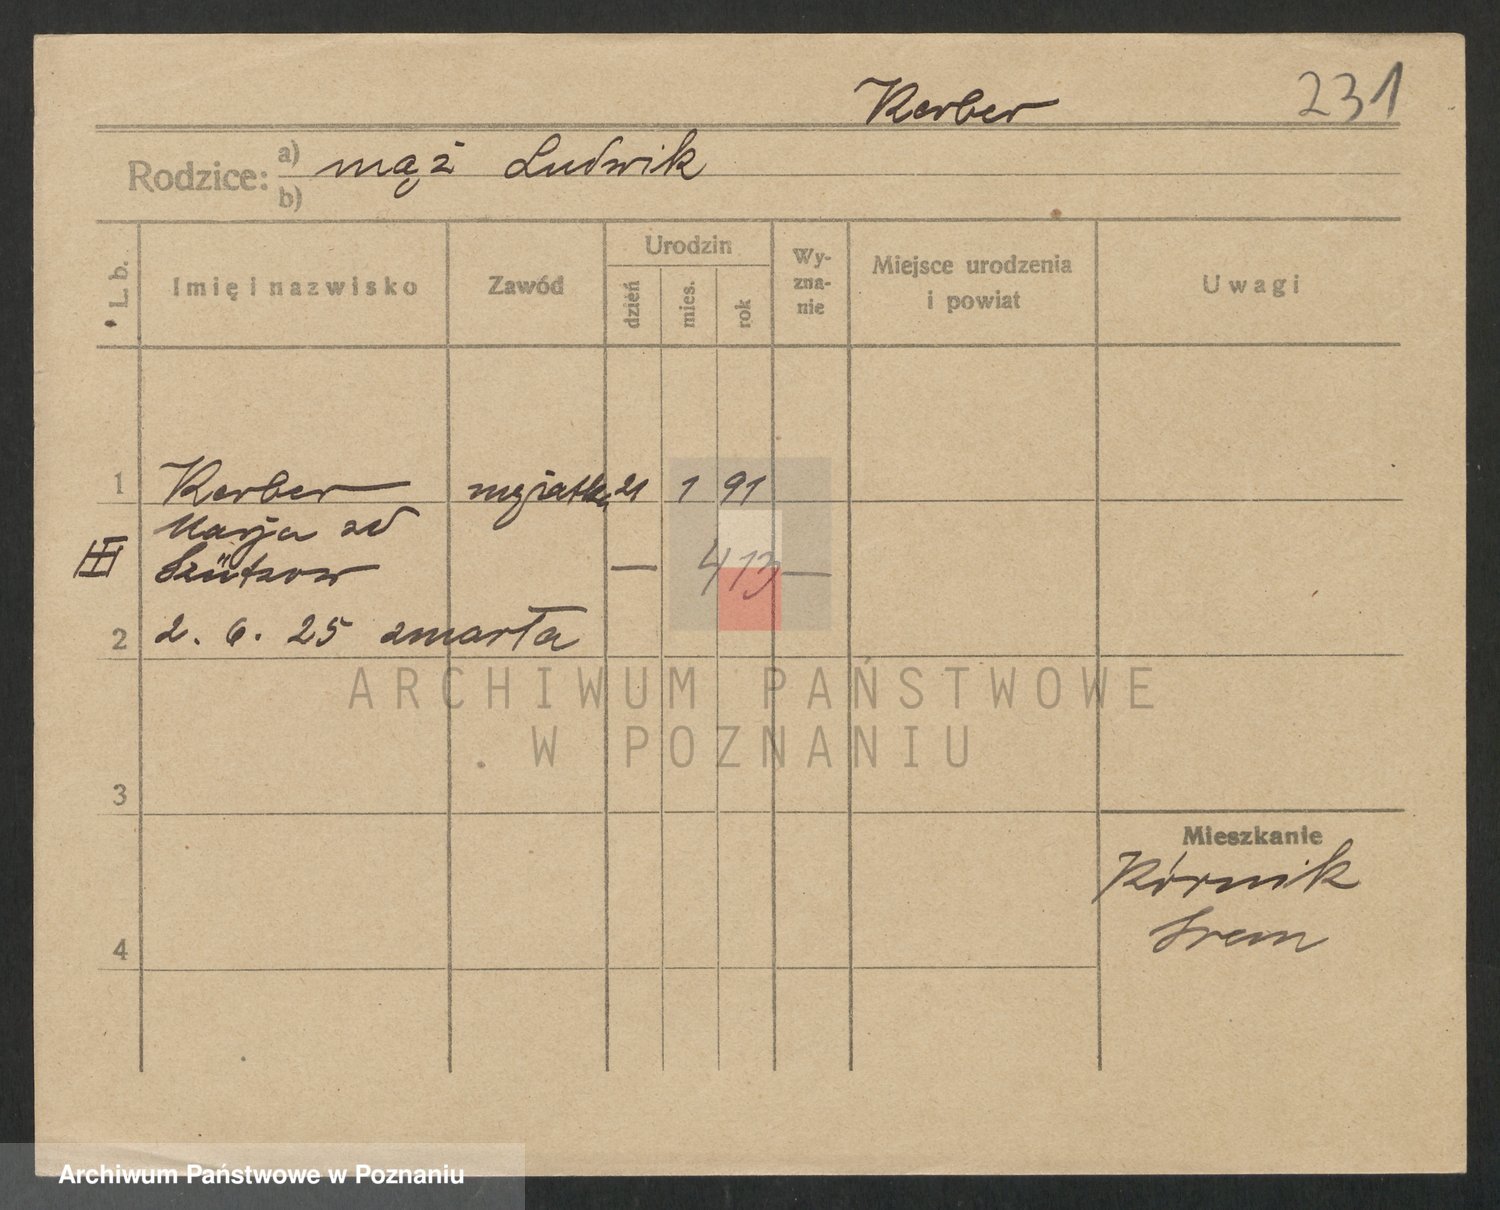 Kerber 231
Rodzice: a) mąż Ludwik
b)
L. b.
Imię i nazwisko
Zawód
Urodzin
dzień
mies.
rok
Wy-
zna-
nie
Miejsce urodzenia
i powiat
Uwagi
1 Kerber mężatka 21 1 91
Marja zd
Szützow
— 413 —
2 2. 6. 25 zmarła
ARCHIWUM PAŃSTWOWE
W POZNANIU
3
Mieszkanie
Kórnik
Srem
4
Archiwum Państwowe w Poznaniu